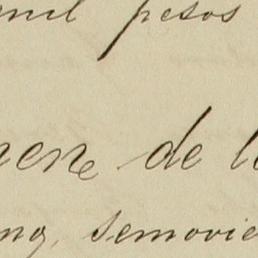 mil pesos
nene de l
ng, semovie